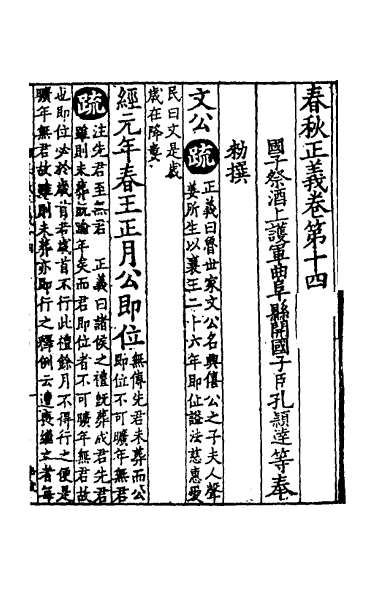 春秋正義卷第十四
國子祭酒上護軍曲阜縣開國子臣孔穎達等奉
勑撰
文公 疏 正義曰魯世家文公名興僖公之子夫人聲
姜所生以襄王二十六年即位謚法慈惠愛
民曰文是歲
歲在降婁
經元年春王正月公即位 無傳先君未葬而公
即位不可曠年無君
疏 注先君至無君 正義曰諸侯之禮旣葬成君先君
雖則未葬旣踰年矣而君即位者不可曠年無君故
也即位必於歲首若歲首不行此禮餘月不得行之便是
曠年無君故雖則未葬亦即行之釋例云遭喪繼立者每